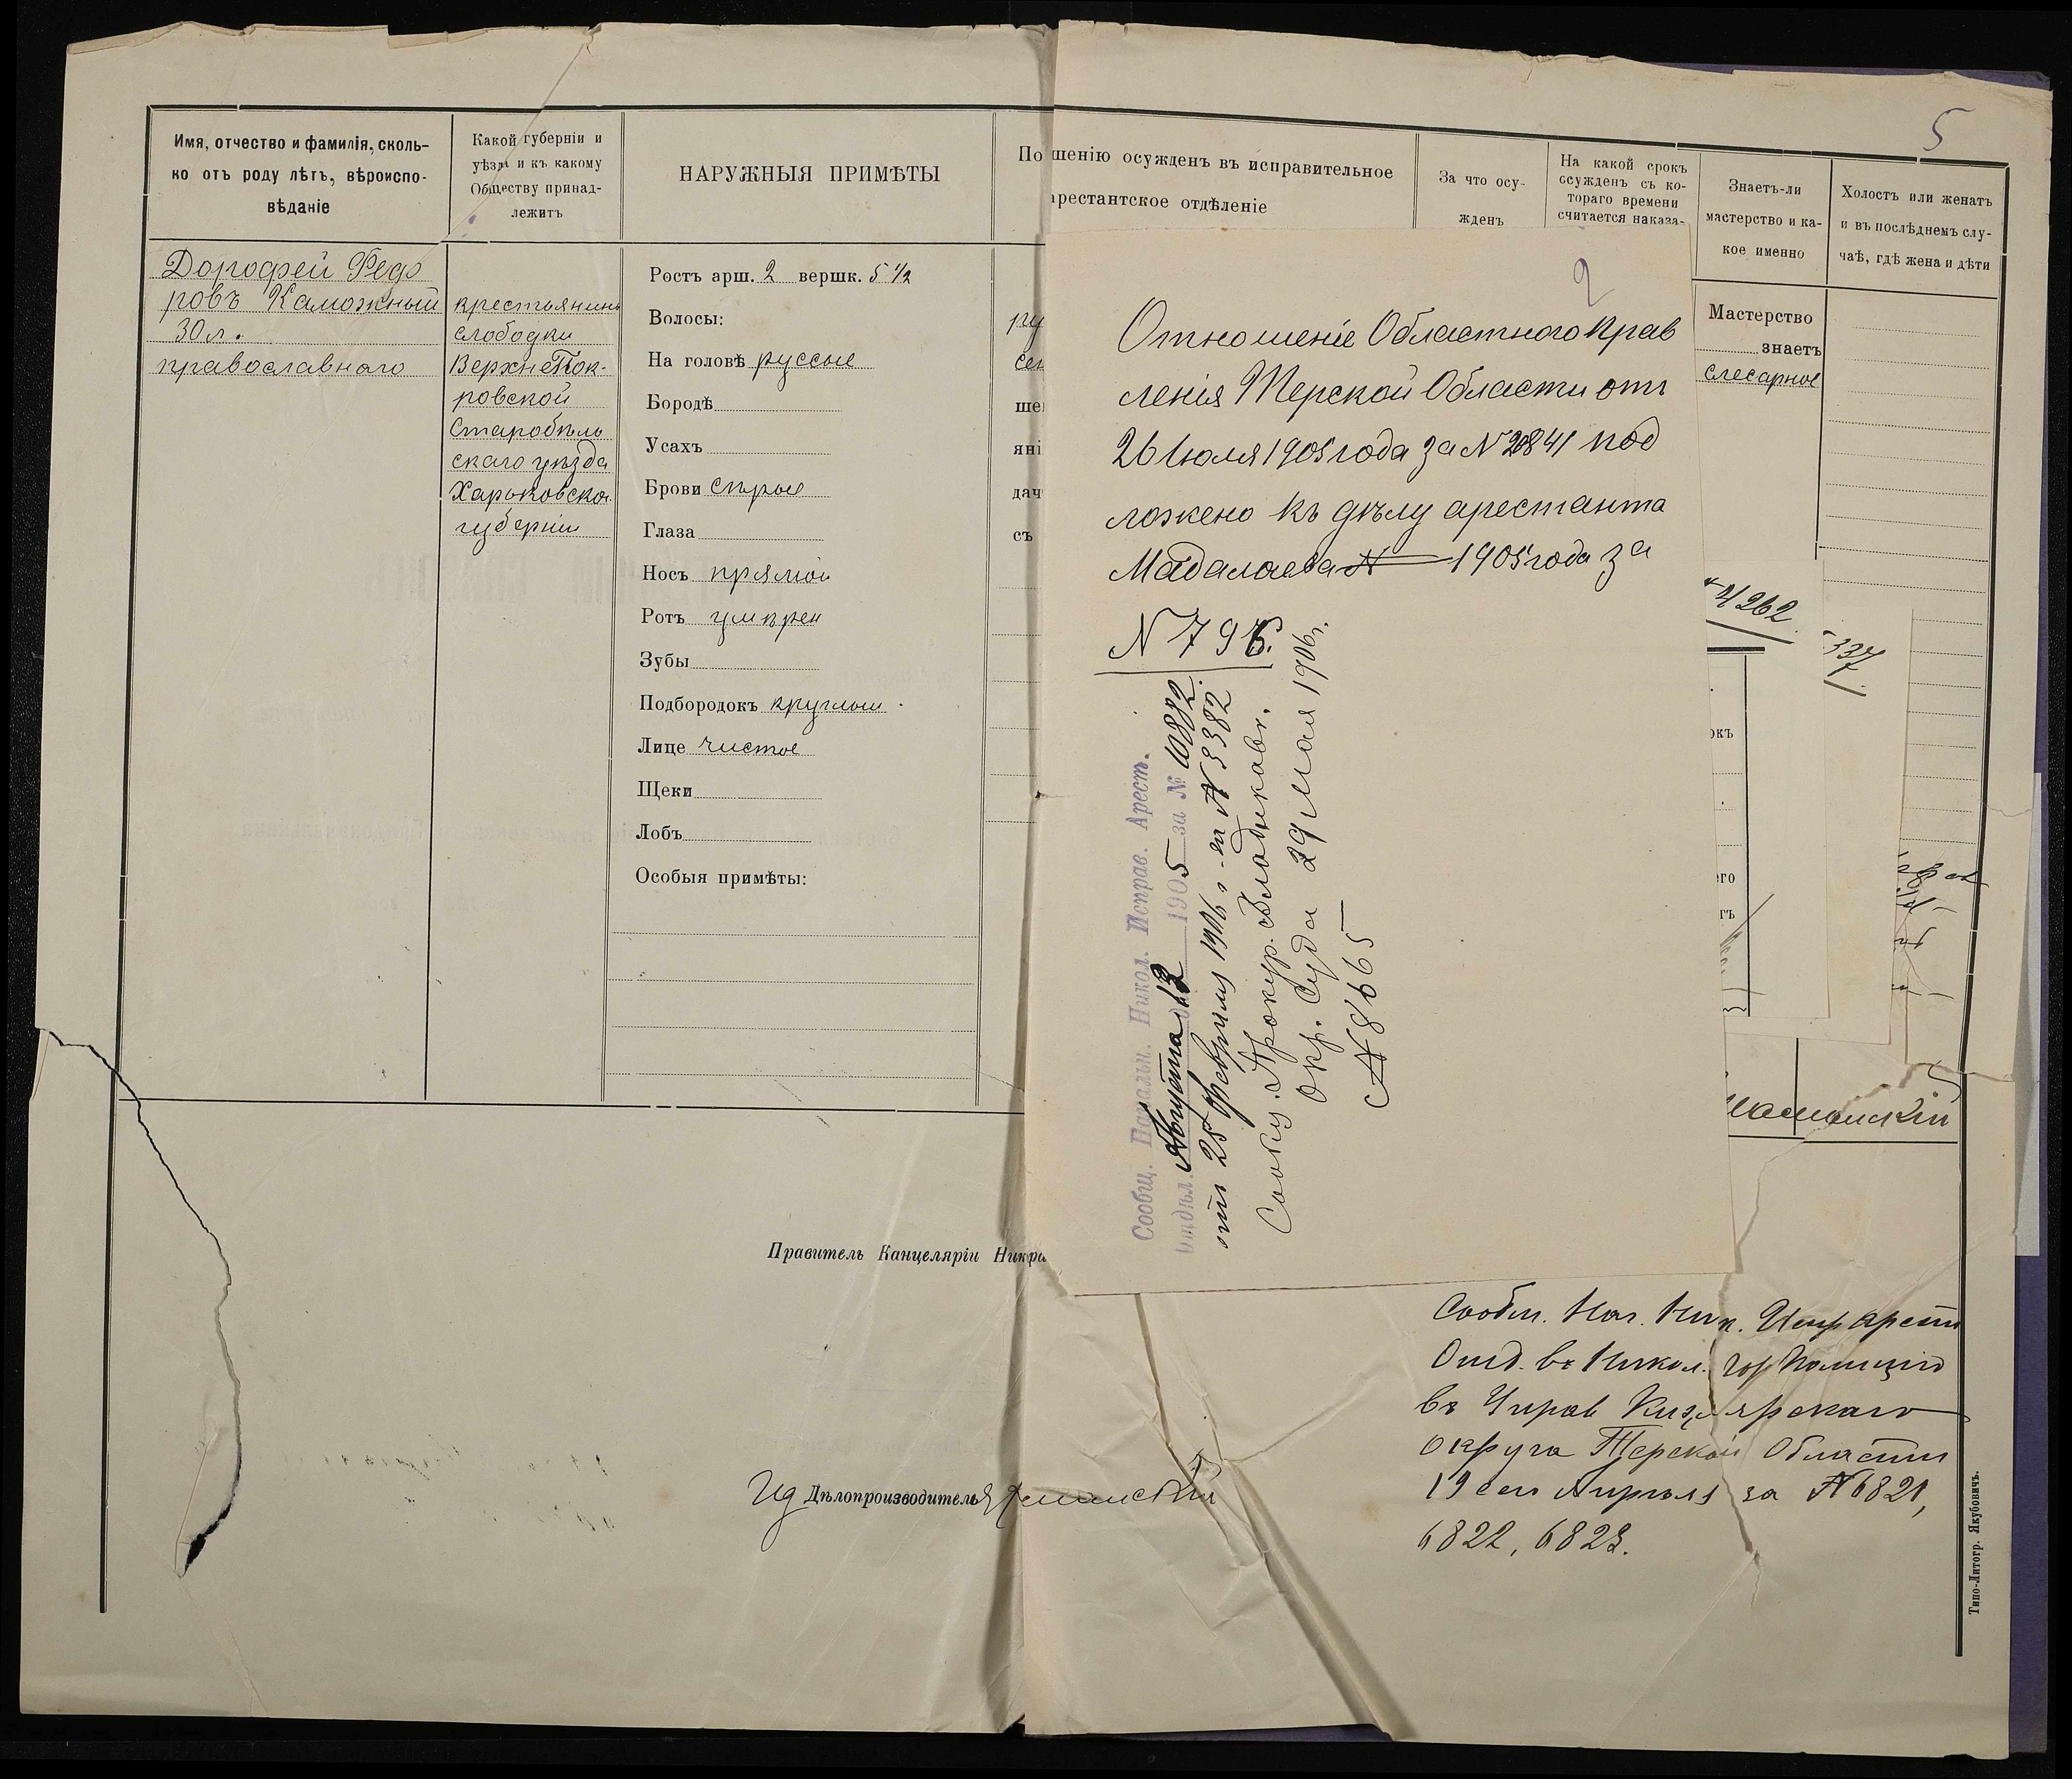 5
Имя, отчество и фамилія, сколь-
ко отъ роду лѣтъ, вѣроиспо-
вѣданіе
Какой губерніи и
уѣзда и къ какому
Обществу принад-
лежитъ
НАРУЖНЫЯ ПРИМѢТЫ
По
шенію осужденъ въ исправительное
арестантское отдѣленіе
За что осу-
жденъ
На какой срокъ
осужденъ съ ко-
тораго времени
считается наказа-
Знаетъ-ли
мастерство и ка-
кое именно
Холостъ или женатъ
и въ послѣднемъ слу-
чаѣ, гдѣ жена и дѣти
Дорофей Федо
ровъ Каможный
30 л.
православнаго
крестьянинъ
слободки
Верхне Пок-
ровской
Старобѣль
скаго уѣзда
Харьковской
губерніи
Ростъ арш. 2 вершк. 5 1/2
Волосы:
На головѣ руссые
Бородѣ
Усахъ
Брови сѣрые
Глаза
Носъ прямой
Ротъ умѣрен
Зубы
Подбородокъ круглый
Лице чистое
Щеки
Лобъ
Особыя примѣты:
ше
яні
дач
съ
2
Отношеніе Областного Прав
ленія Терской Области отъ
26 Іюля 1905 года за N 20841 под
ложено къ дѣлу арестанта
Мадалаева 1905 года за
N 795.
Сообщ. Начальн. Никол. Исправ. Арест.
Отдѣл. Августа 12 1905 за № 10882.
отъ 25 февраля 1906 г. за N 3382
Сообщ. Прокур. Владикавк.
Окр. Суда 29 мая 1906 г.
N 8665
Мастерство
знаетъ
слесарное
4262
337
окъ
его
гъ
Правитель Канцеляріи
Ид Дѣлопроизводитель
Сообщ. Нач. Ник. Испр Арест
Отд. въ Никол. гор Полицію
въ Управ Кизлярскаго
округа Терской Области
19 сего Апрѣля за N 6821,
6822, 6823.
Типо-Литогр. Якубовичъ.